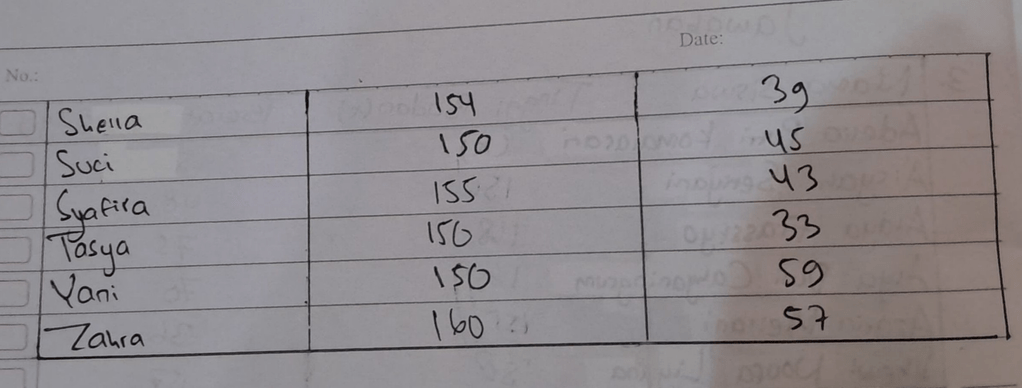 Date:
No.:
Shella 154 39
Suci 150 45
Syafira 155 43
Tasya 150 33
Yani 150 59
Zahra 160 57